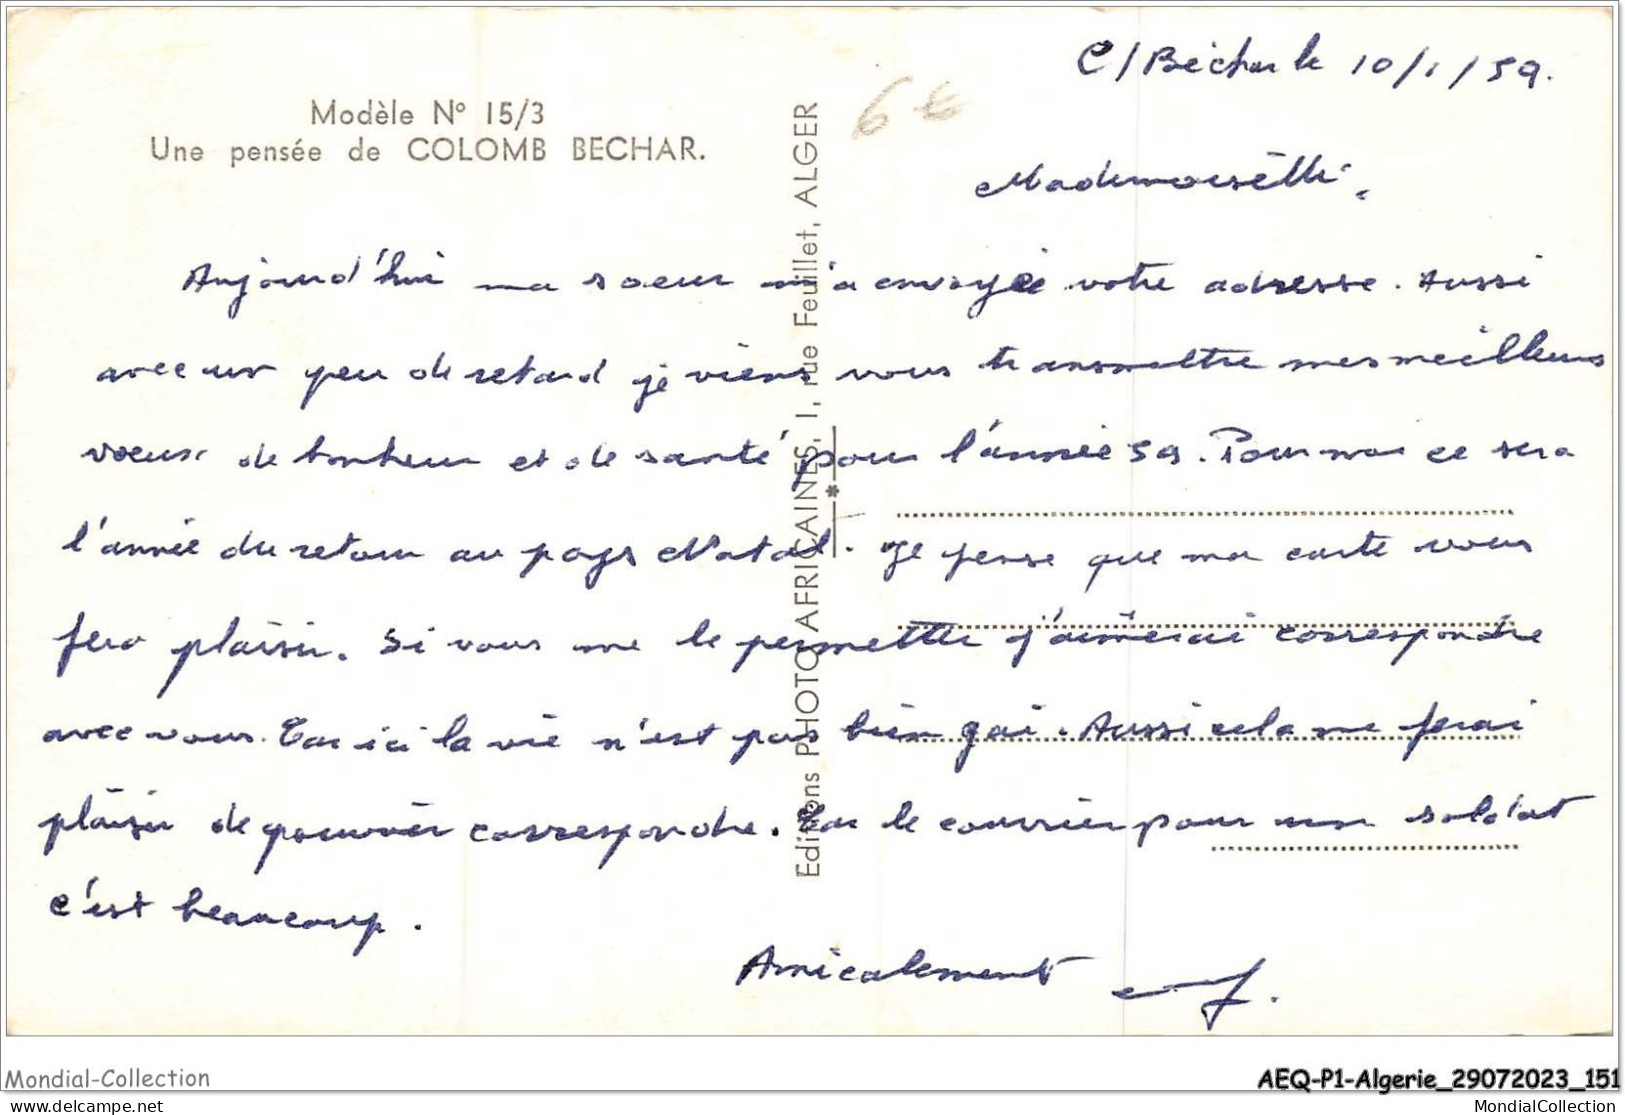 C/Bechar le 10/1/59.
6€
Modèle N° 15/3
Une pensée de COLOMB BECHAR.
Editions PHOTO AFRICAINES, 1, rue Feuillet, ALGER
Mademoiselle.
Aujourd'hui ma soeur m'a envoyée votre adresse. Aussi
avec un peu de retard je viens vous transmettre mes meilleurs
voeux de bonheur et de santé pour l'année 59. Pour moi ce sera
l'année du retour au pays Natal. Je pense que ma carte vous
fera plaisir. Si vous me le permetter j'aimerai correspondre
avec vous. Car ici la vie n'est pas bien gai. Aussi cela me ferai
plaisir de pouvoir correspondre. Car le courrier pour un soldat
c'est beaucoup.
Amicalement
Mondial-Collection
AEQ-P1-Algerie_29072023_151
delcampe.net
MondialCollection